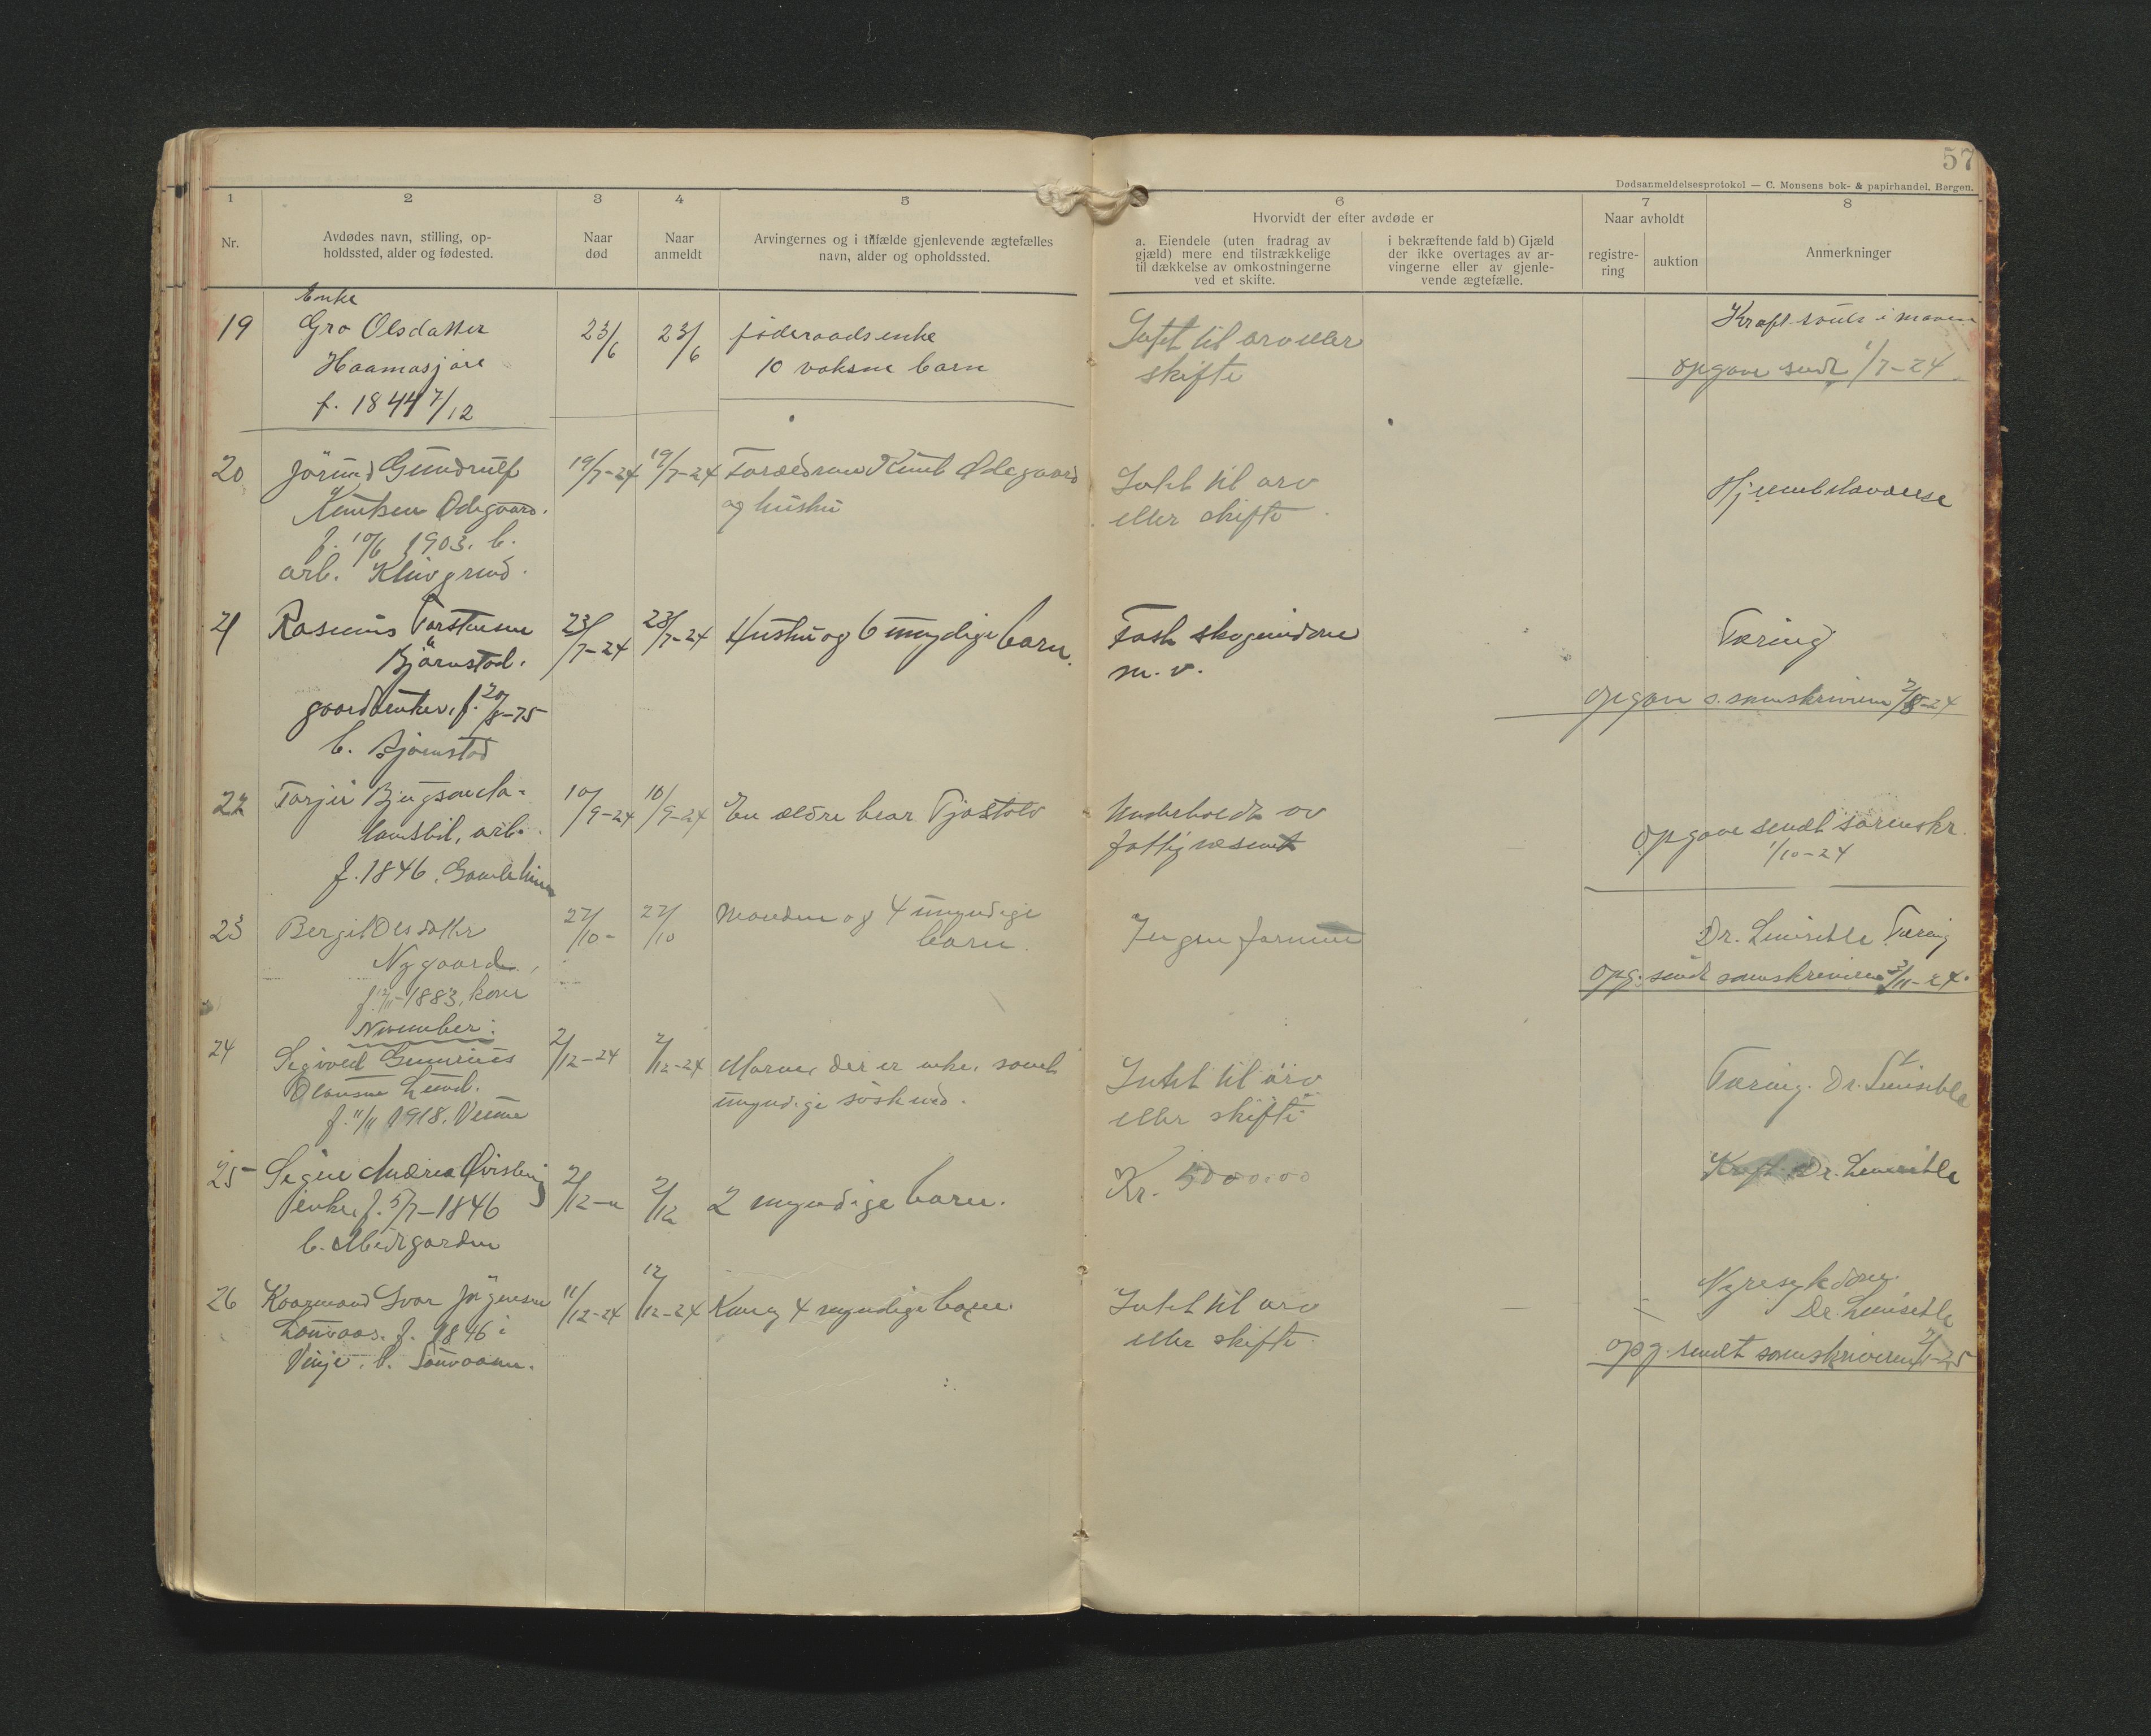 57
Dødsanmeldelsesprotokol — C. Monsens bok- & papirhandel, Bergen.
1 2 3 4 5 6 7 8
Nr.
Avdødes navn, stilling, op-
holdssted, alder og fødested.
Naar
død
Naar
anmeldt
Arvingernes og i tilfælde gjenlevende ægtefælles
navn, alder og opholdssted.
Hvorvidt der efter avdøde er
a. Eiendele (uten fradrag av
gjæld) mere end tilstrækkelige
til dækkelse av omkostningerne
ved et skifte.
i bekræftende fald b) Gjæld
der ikke overtages av ar-
vingerne eller av gjenle-
vende ægtefælle.
Naar avholdt
registre-
ring
auktion
Anmerkninger
19
Enke
Gro Olsdatter
f. 1844 7/12
23/6
23/6
føderaadsenke
10 voksne barn
Intet til arv eller
skifte
i maven
opgave sendt 1/7-24
20
Jörund Gundrulf
Knutsen Ødegaard.
f. 10/6 1903. b.
arb.
19/7-24
19/7-24
Forældrene Knut Ødegaard
og hustru
Intet til arv
eller skifte
21
Rasmus Torstensen
Björnstad.
gaardbruker, f. 20/8-75
b. Bjørnstad
23/7-24
28/7-24
Hustru og 6 umyndige barn.
Fast skogeiendom
m. v.
Tæring
opgave s. sorenskriveren 2/8-24
22
Torjus
arb.
f. 1846.
10/9-24
10/9-24
En ældre bror Tjostolv
Underholdt av
fattigvesenet
Opgave sendt sorenskr.
1/10-24
23
Bergit Olsdatter
Nygaard,
f. 12/11-1883, kone
November.
27/10-
27/10
Manden og 4 umyndige
barn.
Ingen formue
Dr. Tæring
opg. sendt sorenskriveren 3/11-24.
24
Sigvald Gunerius
Olavsen Lund.
f. 11/11 1918.
2/12-24
2/12-24
Moren, der er enke, samt
umyndige søskend.
Intet til arv
eller skifte
Tæring. Dr.
25
Signe Andrea
enke, f. 5/7-1846
b. Midgarden
2/12
2/12
2 myndige barn.
Kr. 5000.00
Kræft. Dr.
26
Kaarmand Ivar Jörgensen
f. 1846 i
Vinje. b.
11/12-24
12/12-24
Kone og 4 myndige barn.
Intet til arv
eller skifte.
Nyresykdom.
Dr.
opg. sendt sorenskriveren 2/1-25